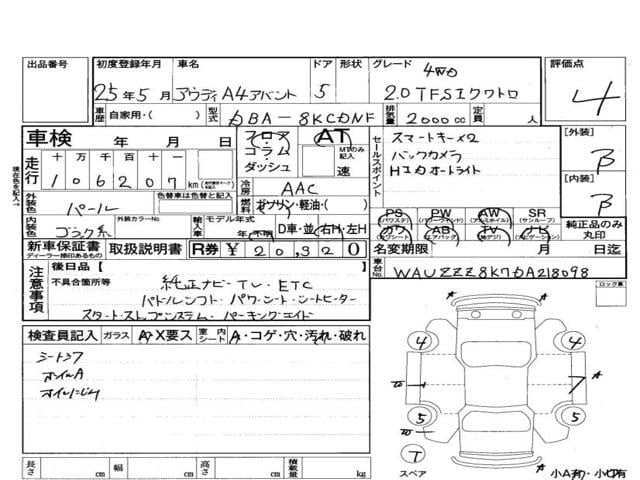 出品番号 初度登録年月 車名 ドア 形状 グレード 評価点
25年5月 アウディA4アバント 5 4WD 2.0 TFSIクワトロ 4
車歴 自家用・( ) 型式 DBA-8KCDNF 排気量 2000cc 定員 人
車検 年 月 日 フロア コラム・ダッシュ AT MTのみ記入 速
走行 十万千百十 km
106207
冷房 AAC
燃料 ガソリン・軽油・( )
外装色 パール 外装カラーNo. 色替車は色替と記入
内装色 輸入車 モデル年式 年・不明 D車・並 右H・左H
新車保証書 ディーラー捺印あるもの 取扱説明書 R券 ¥20,320
セールスポイント
スマートキー×2
バックカメラ
HIDオートライト
PS PW AW SR
(パワーウインド) (アルミホイル) (サンルーフ)
カワ AB TV ナビ
(エアバッグ) (ナビゲーション)
[外装] B
[内装] B
純正品のみ丸印
名変期限 月 日迄
車台No. WAUZZZ8K7DA218098
注意事項 後日品【 】
不具合箇所等
純正ナビ・TV・ETC
パドルシフト・パワーシート・シートヒーター
スタートストップシステム・パーキングエイド
ロック車
検査員記入 ガラス A・X要ス 室内シート A・コゲ・穴・汚れ・破れ
シートスフ
ホイルA
4 4
A A
W 7
5 5
W A
T
スペア 小A有・小W有
長さ cm 幅 cm 高さ cm 積載量 kg
現在色を記入→